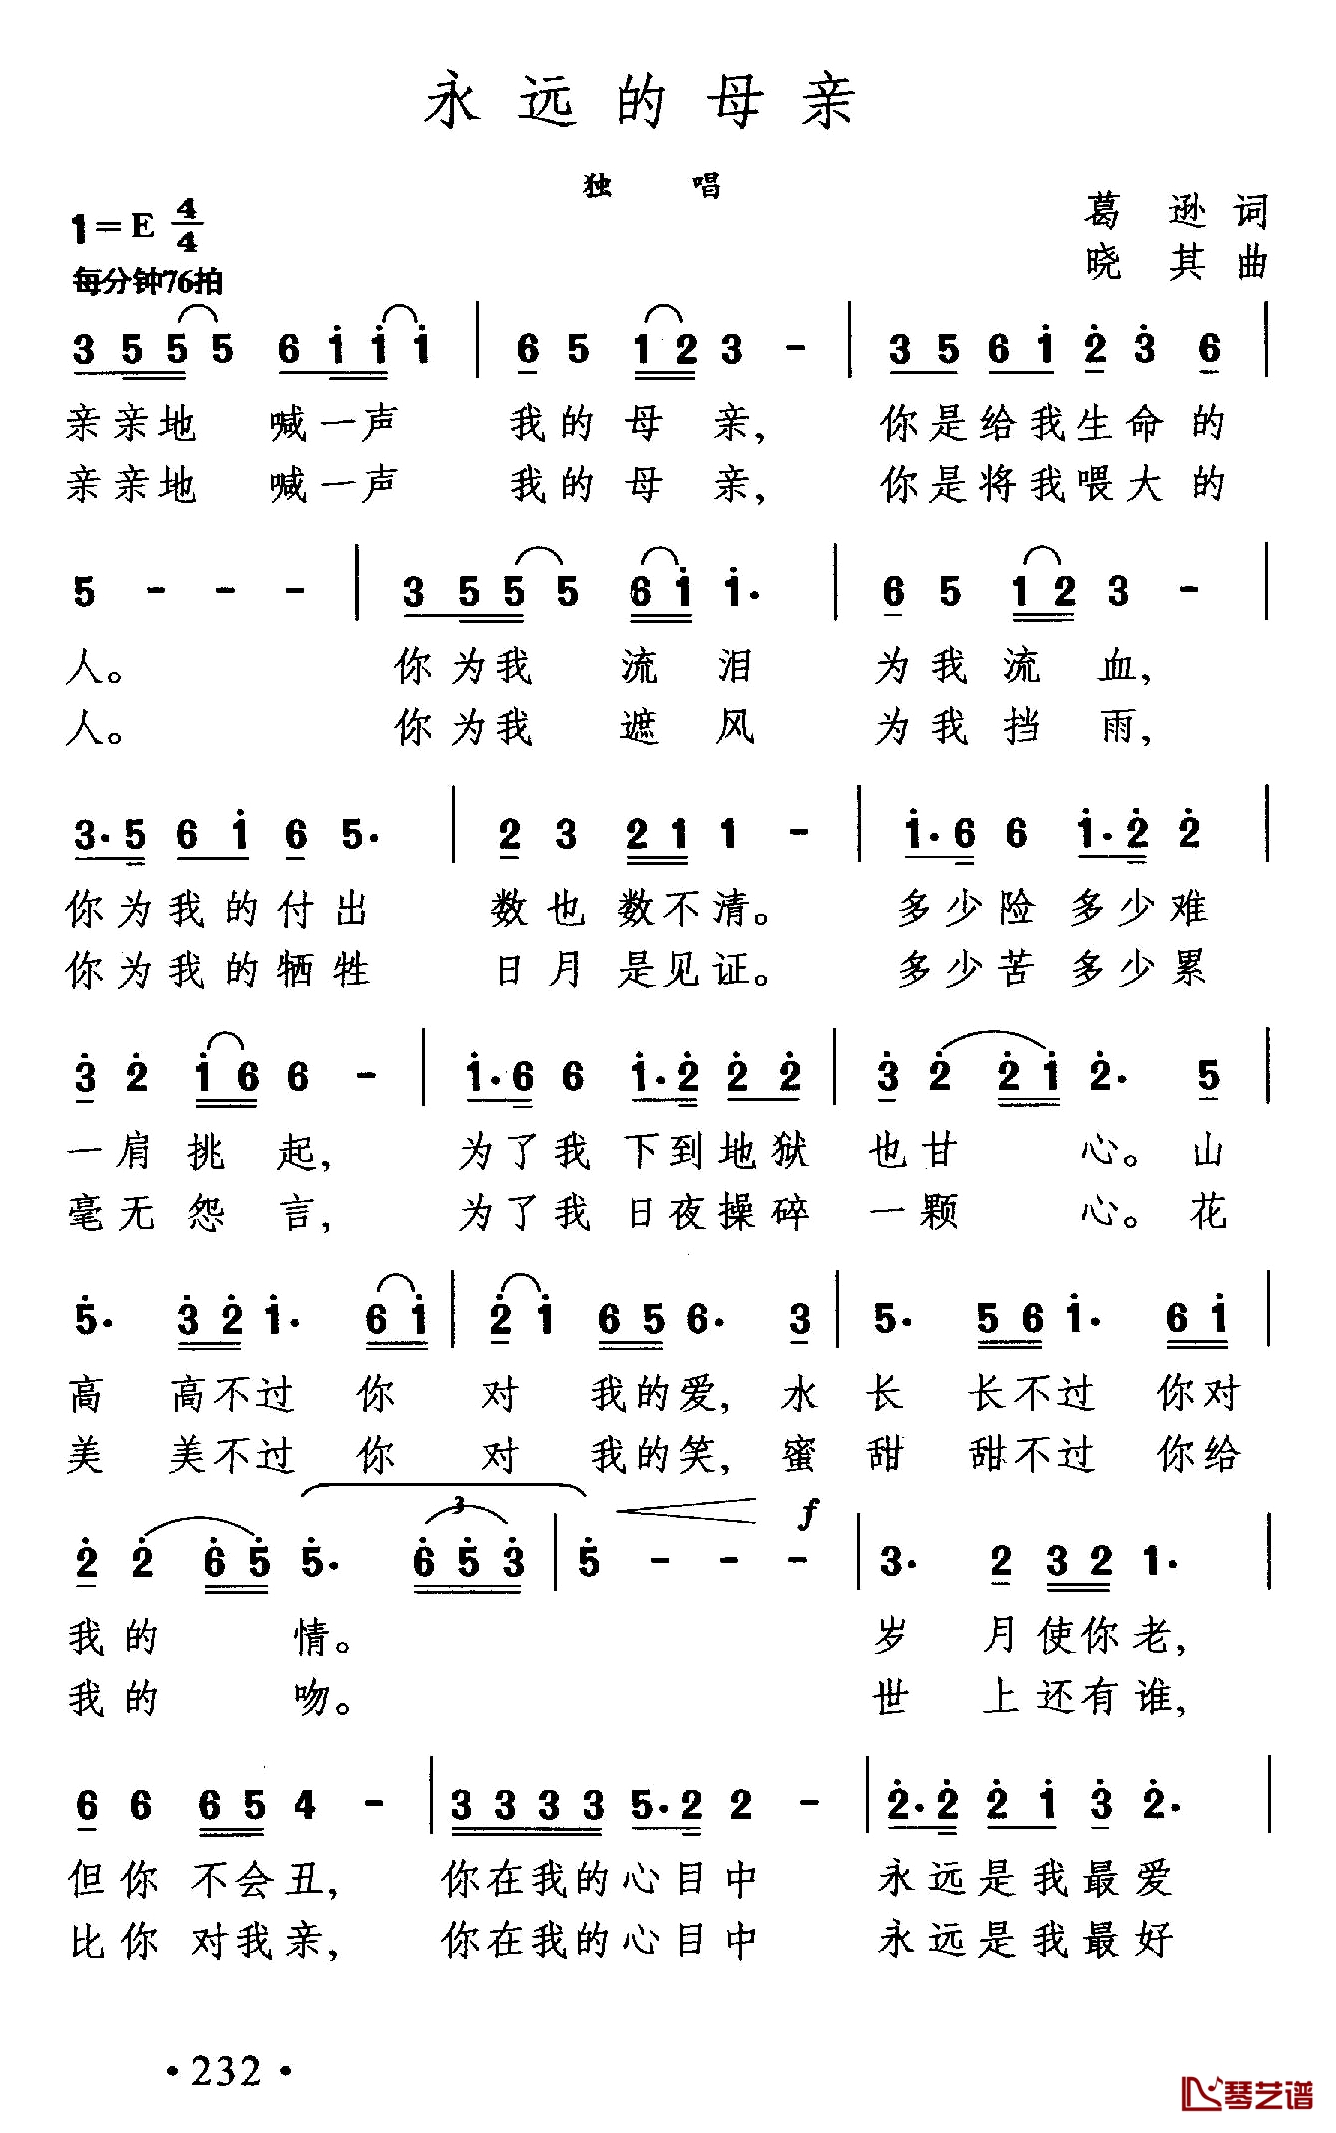 永远的母亲
独 唱
1=E 4/4
葛 逊 词
每分钟76拍
晓 其 曲
3 5 5 5 6 i i i | 6 5 1 2 3 - | 3 5 6 i 2̇ 3̇ 6 |
亲亲地 喊一声 我的母 亲, 你是给我生命的
亲亲地 喊一声 我的母 亲, 你是将我喂大的
5 - - - | 3 5 5 5 6 i i. | 6 5 1 2 3 - |
人。 你为我 流 泪 为我流 血,
人。 你为我 遮 风 为我挡 雨,
3. 5 6 i 6 5. | 2 3 2 1 1 - | i. 6 6 i. 2̇ 2̇ |
你为我的付出 数也数不清。 多少险 多少难
你为我的牺牲 日月是见证。 多少苦 多少累
3̇ 2̇ i 6 6 - | i. 6 6 i. 2̇ 2̇ 2̇ | 3̇ 2̇ 2̇ i 2̇. 5̇ |
一肩挑 起, 为了我 下到地狱 也甘 心。 山
毫无怨 言, 为了我 日夜操碎 一颗 心。 花
5̇. 3̇ 2̇ i. 6 i | 2̇ i 6 5 6. 3 | 5. 5 6 i. 6 i |
高 高不过 你 对 我的爱, 水 长 长不过 你对
美 美不过 你 对 我的笑, 蜜 甜 甜不过 你给
2̇ 2̇ 6̇ 5̇ 5̇. 6̇ 5̇ 3̇ | 5̇ - - - | 3. 2 3 2 1. |
3
f
我的 情。 岁 月使你老,
我的 吻。 世 上还有谁,
6 6 6 5 4 - | 3 3 3 3 5. 2 2 - | 2̇. 2̇ 2̇ i 3̇ 2̇. |
但你 不会丑, 你在我的心目中 永远是我最爱
比你 对我亲, 你在我的心目中 永远是我最好
·232·
琴艺谱